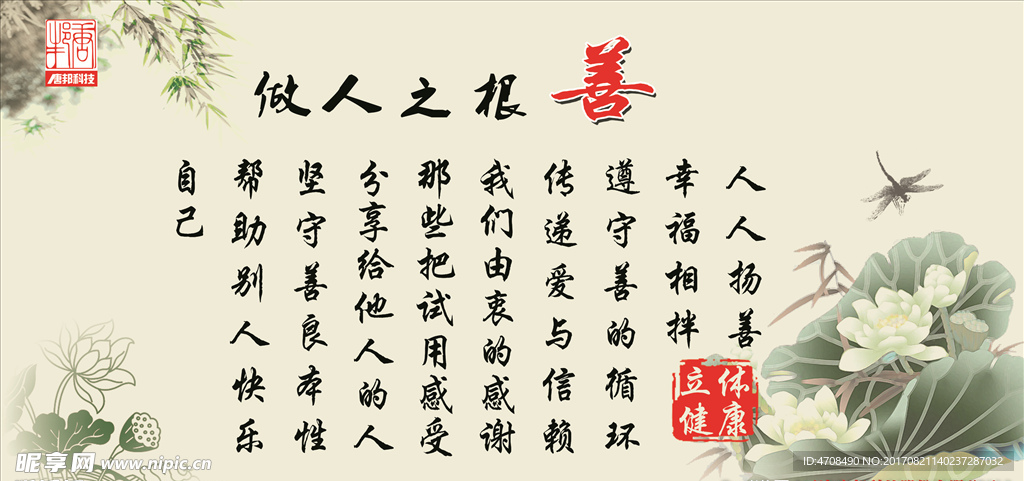 唐邦
唐邦科技
做人之根善
人人扬善
幸福相拌
遵守善的循环
传递爱与信赖
我们由衷的感谢
那些把试用感受
分享给他人的人
坚守善良本性
帮助别人快乐
自己
立体
健康
昵享网 www.nipic.cn
ID:4708490 NO:20170821140237287032